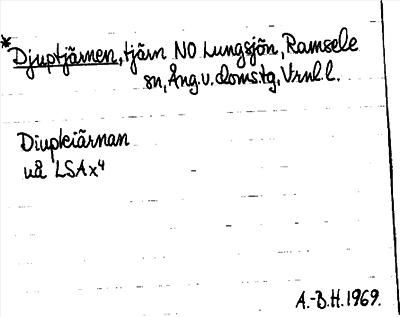 *Djuptjärnen, tjärn NO Lungsjön, Ramsele
sn, Ång.v.doms.tg, Vrnl.l.
Diupkiärnan
uå LSA x⁴
A.-B.H. 1969.